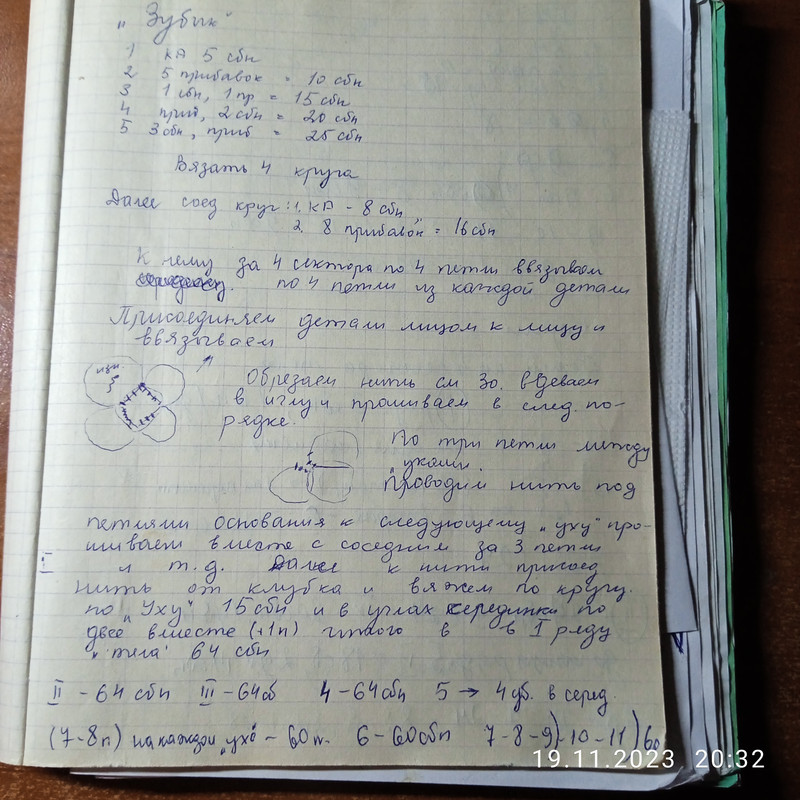 „Зубик"
1 КА 5 сбн
2 5 прибавок = 10 сбн
3 1 сбн, 1 пр = 15 сбн
4 приб, 2 сбн = 20 сбн
5 3 сбн, приб = 25 сбн
Вязать 4 круга
Далее соед круг: 1. КА - 8 сбн
2. 8 прибавок = 16 сбн
К нему за 4 сектора по 4 петли ввязываем
по 4 петли из каждой детали
Присоединяем детали лицом к лицу и
ввязываем
Обрезаем нить см 30, вдеваем
в иглу и прошиваем в след. по-
рядке.
По три петли между
„ухами".
Проводим нить под
петлями основания к следующему „уху" про-
шиваем вместе с соседним за 3 петли
и т.д. Далее к нити присоед
I нить от клубка и вяжем по кругу.
по „Уху" 15 сбн и в углах серединка по
две вместе (+1п) итого в в I ряду
„тела" 64 сбн
II - 64 сбн III - 64 сб 4 - 64 сбн 5 → 4 уб. в серед.
(7-8п) на каждом „ухе" - 60 п. 6 - 60 сбн 7-8-9)-10-11) 60
19.11.2023 20:32